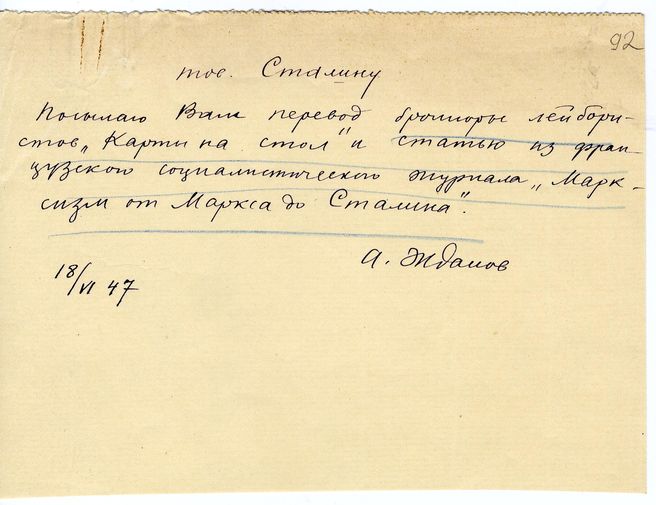 92
тов. Сталину
Посылаю Вам перевод брошюры лейбори-
стов „Карты на стол" и статью из фран-
цузского социалистического журнала „Марк-
сизм от Маркса до Сталина".
А. Жданов
18/VI 47